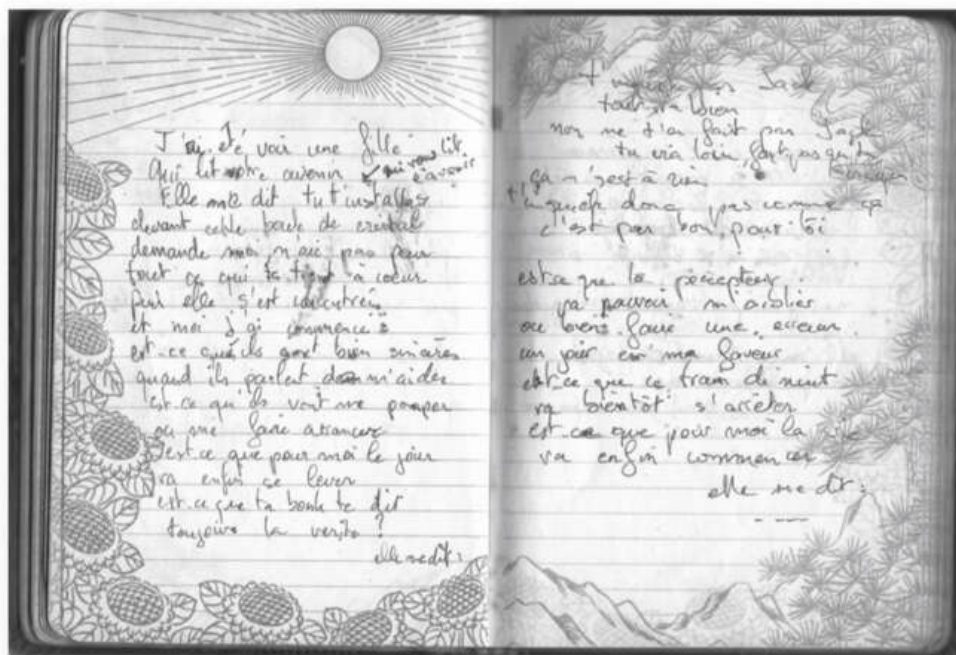 J'ai été voir une fille
Qui lit votre avenir qui vous lit l'avenir
Elle me dit tu t'installes
devant cette boule de cristal
demande moi n'aie pas peur
tout ce qui te tient à coeur
puis elle s'est concentrée
et moi j'ai commencé
est-ce qu'ils sont bien sincères
quand ils parlent de m'aider
est-ce qu'ils vont me pomper
ou me faire avancer
est-ce que pour moi le jour
va enfin se lever
est-ce que ta boule te dit
toujours la vérité ?
elle me dit :
t'inquiète pas Jack
tout va bien
non ne t'en fait pas Jack
tu iras loin
ça n'sert à rien
t'inquiète donc pas comme ça
c'est pas bon pour toi
est ce que le percepteur
va pouvoir m'oublier
ou bien faire une erreur
un jour en ma faveur
est-ce que ce train de nuit
va bientôt s'arrêter
est-ce que pour moi la vie
va enfin commencer
elle me dit :
- ----